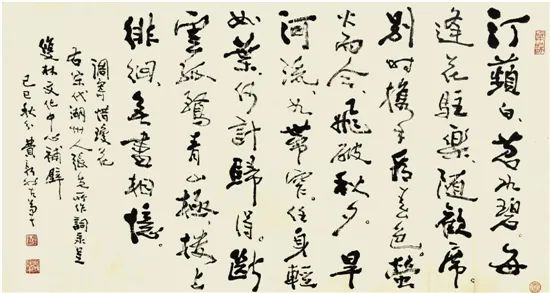 汀蘋白。苕水碧。每
逢花駐樂,隨歡席。
別時攜手看春色。螢
火而今,飛破秋夕。旱
河流,如帶窄。任身輕
如葉,何計歸得。斷
雲孤鶩青山極。樓上
徘徊。無盡相憶。
調寄惜瓊花
右宋代湖州人張先所作詞錄呈
雙林文化中心補壁
己巳秋分費新我左筆